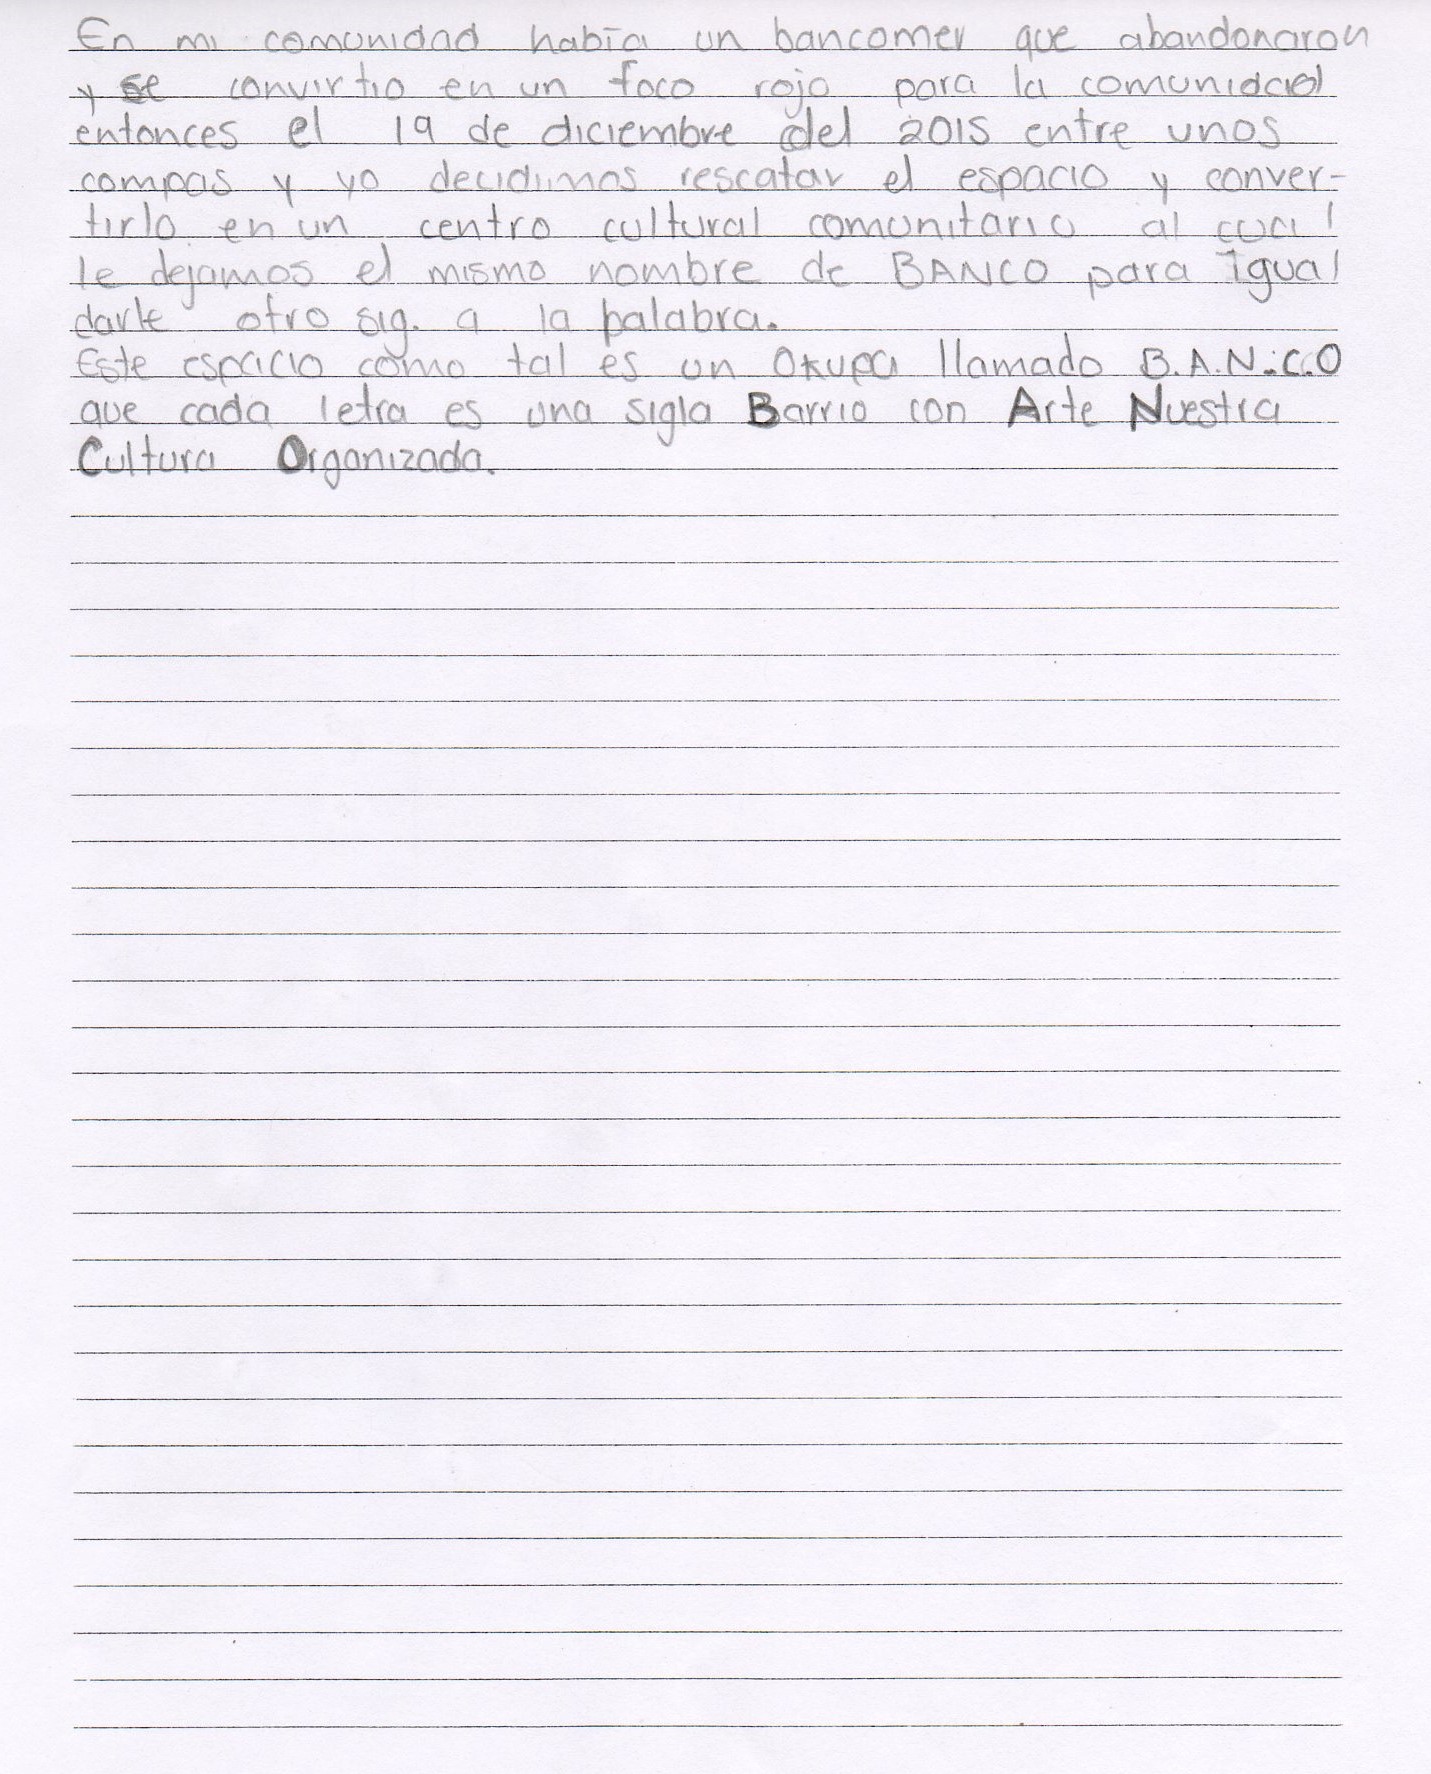 En mi comunidad había un bancomer que abandonaron
y se convirtio en un foco rojo para la comunidad
entonces el 19 de diciembre del 2015 entre unos
compas y yo decidimos rescatar el espacio y conver-
tirlo en un centro cultural comunitario al cual
le dejamos el mismo nombre de BANCO para igual
darle otro sig. a la palabra.
Este espacio como tal es un Okupa llamado B.A.N.C.O
que cada letra es una sigla Barrio con Arte Nuestra
Cultura Organizada.